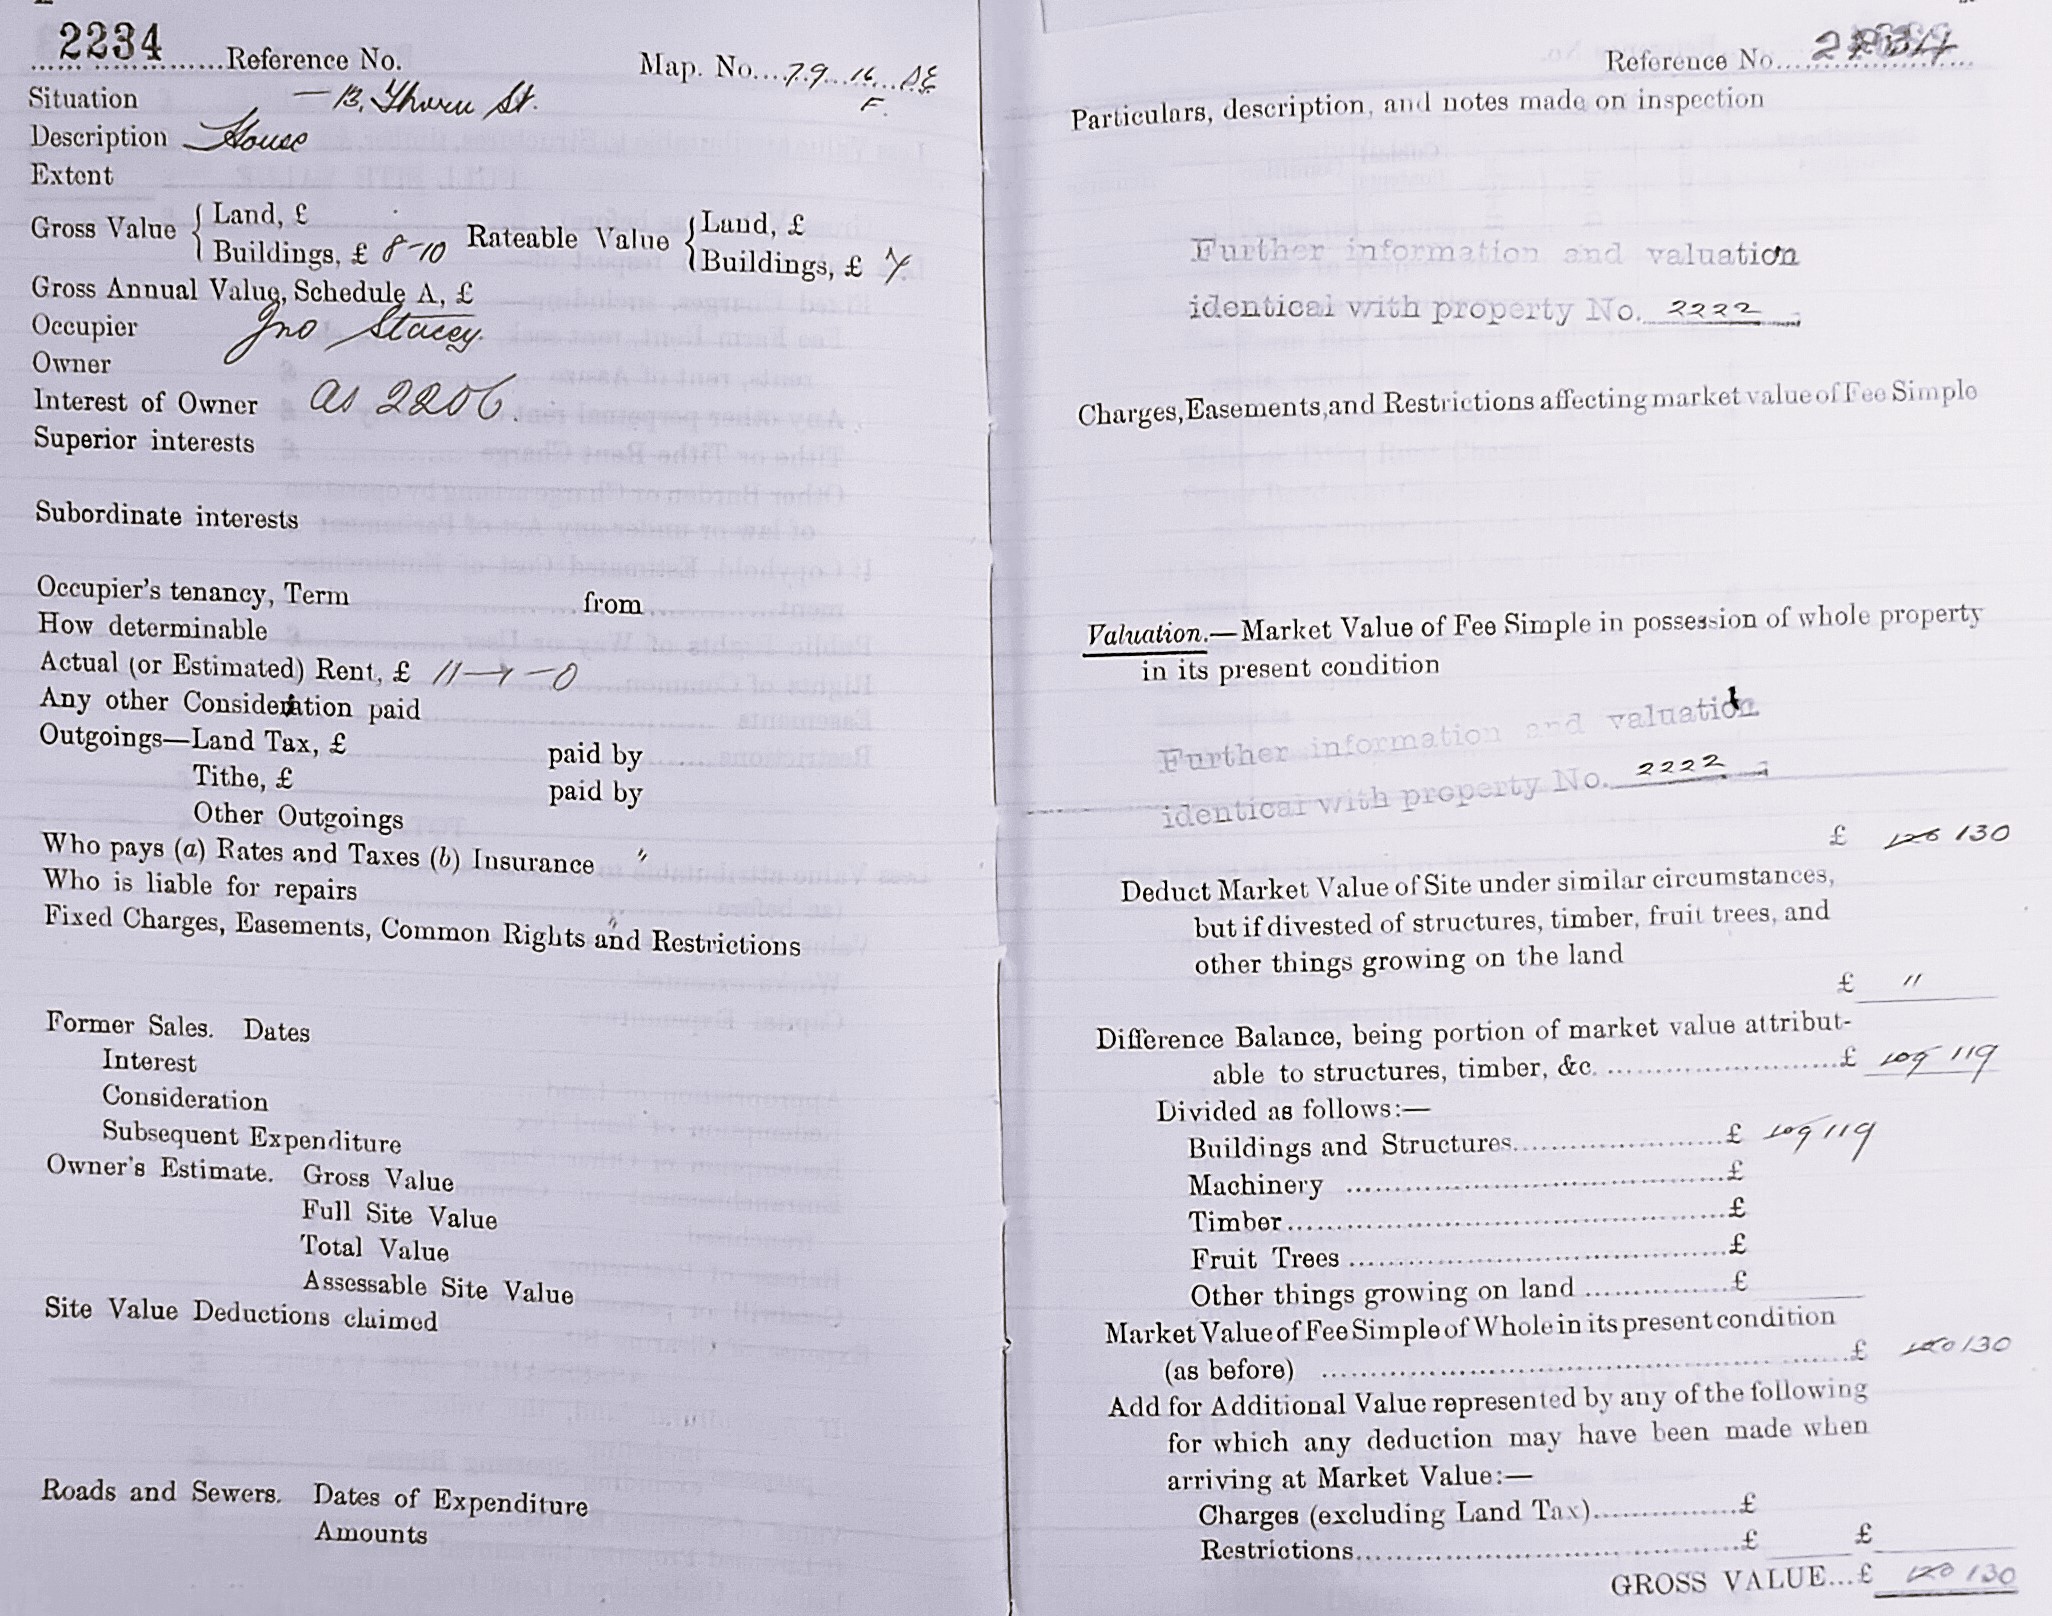 2234 Reference No. Map. No. 79 16 SE
F.
Situation — 13, Thurm St.
Description House
Extent
Gross Value { Land, £
Buildings, £ 8-10 Rateable Value { Land, £
Buildings, £ 7
Gross Annual Value, Schedule A, £
Occupier Jno Stacey.
Owner
Interest of Owner as 2206.
Superior interests
Subordinate interests
Occupier's tenancy, Term from
How determinable
Actual (or Estimated) Rent, £ 11-1-0
Any other Consideration paid
Outgoings—Land Tax, £ paid by
Tithe, £ paid by
Other Outgoings
Who pays (a) Rates and Taxes (b) Insurance "
Who is liable for repairs
"
Fixed Charges, Easements, Common Rights and Restrictions
Former Sales. Dates
Interest
Consideration
Subsequent Expenditure
Owner's Estimate. Gross Value
Full Site Value
Total Value
Assessable Site Value
Site Value Deductions claimed
Roads and Sewers. Dates of Expenditure
Amounts
Reference No. 2234
Particulars, description, and notes made on inspection
Further information and valuation
identical with property No. 2222.
Charges, Easements, and Restrictions affecting market value of Fee Simple
Valuation.—Market Value of Fee Simple in possession of whole property
in its present condition
Further information and valuation
identical with property No. 2222.
£ 120 130
Deduct Market Value of Site under similar circumstances,
but if divested of structures, timber, fruit trees, and
other things growing on the land
£ 11
Difference Balance, being portion of market value attribut-
able to structures, timber, &c. £ 109 119
Divided as follows:—
Buildings and Structures £ 109 119
Machinery £
Timber £
Fruit Trees £
Other things growing on land £
Market Value of Fee Simple of Whole in its present condition
(as before) £ 120 130
Add for Additional Value represented by any of the following
for which any deduction may have been made when
arriving at Market Value:—
Charges (excluding Land Tax) £
Restrictions £ £
GROSS VALUE...£ 120 130